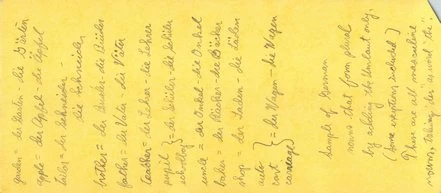 garden = der Garten - die Gärten
apple = der Apfel - die Äpfel
tailor = der Schneider -
die Schneider
brother = der Bruder - die Brüder
father = der Vater - die Väter
teacher = der Lehrer - die Lehrer
pupil
scholar } = der Schüler - die Schüler
uncle = der Onkel - die Onkel
baker = der Bäcker - die Bäcker
shop = der Laden - die Läden
auto
cart } = der Wagen - die Wagen
carriage
Sample of German
nouns that form plural
by adding the Umlaut only.
(Some exceptions included)
These are all masculine
nouns, taking der as word "the"